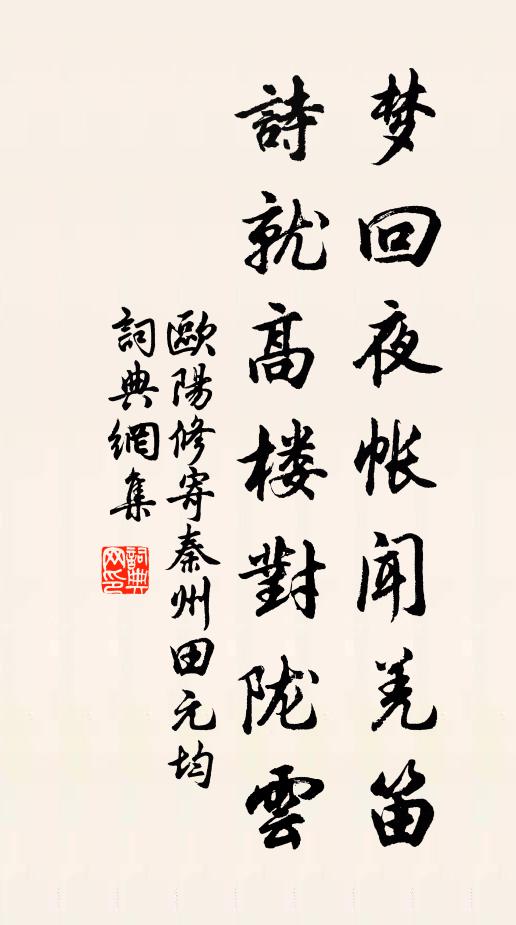 梦回夜帐闻羌笛
詩就高楼對陇雲
歐陽修寄秦州田元均
詞典網集
詞典
网印